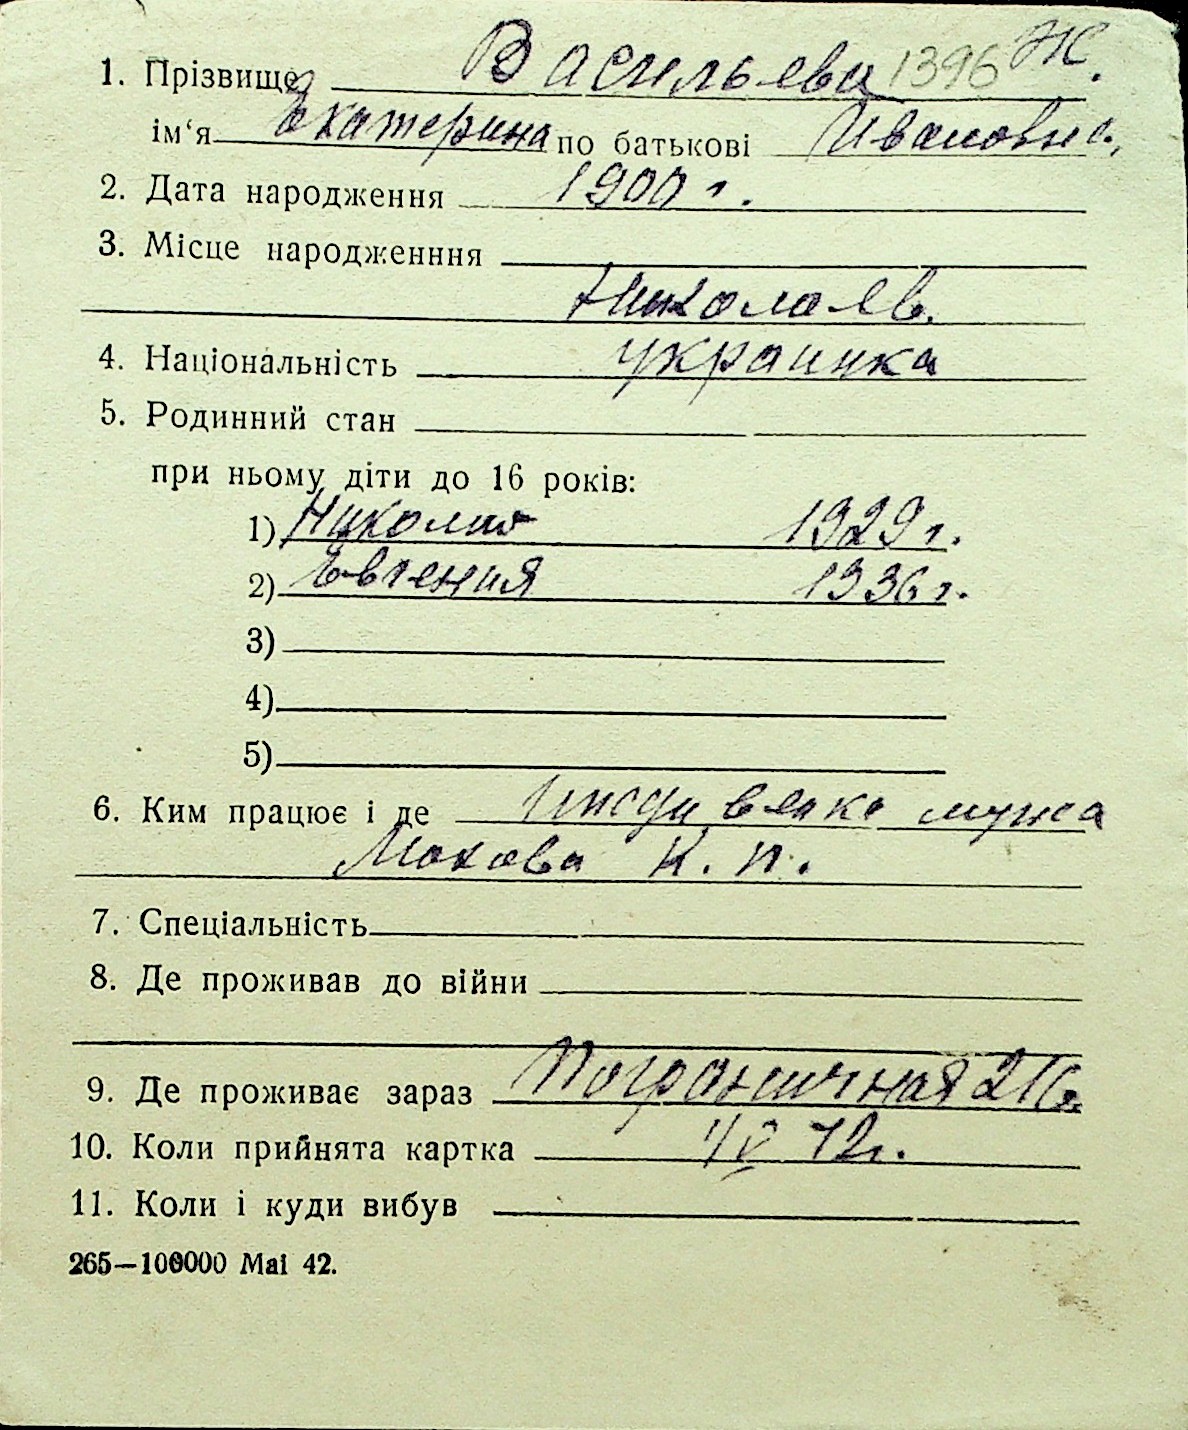 1. Прізвище Васильева 1396 Ж.
ім‘я Екатерина по батькові Ивановна,
2. Дата народження 1900 г.
3. Місце народженння
Николаев.
4. Національність украинка
5. Родинний стан
при ньому діти до 16 років:
1) Николай 1929 г.
2) Евгения 1936 г.
3)
4)
5)
6. Ким працює і де мужа
К. П.
7. Спеціальність
8. Де проживав до війни
9. Де проживає зараз Пограничная
10. Коли прийнята картка
11. Коли і куди вибув
265—100000 Mai 42.